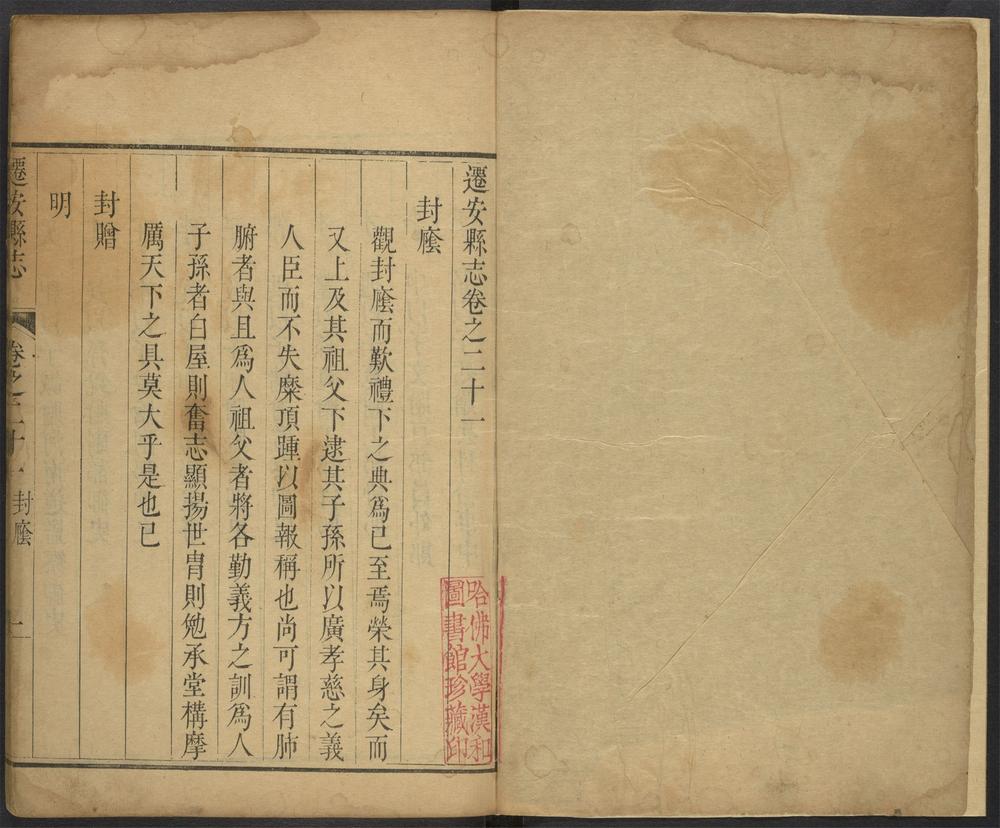 遷安縣志卷之二十一
封廕
觀封廕而歎禮下之典爲已至焉榮其身矣而
又上及其祖父下逮其子孫所以廣孝慈之義
人臣而不失糜頂踵以圖報稱也尚可謂有肺
腑者與且爲人祖父者將各勤義方之訓爲人
子孫者白屋則奮志顯揚世胄則勉承堂構摩
厲天下之具莫大乎是也已
封贈
明
遷安縣志
卷之二十一
封廕
一
哈佛大學漢和
圖書館珍藏印